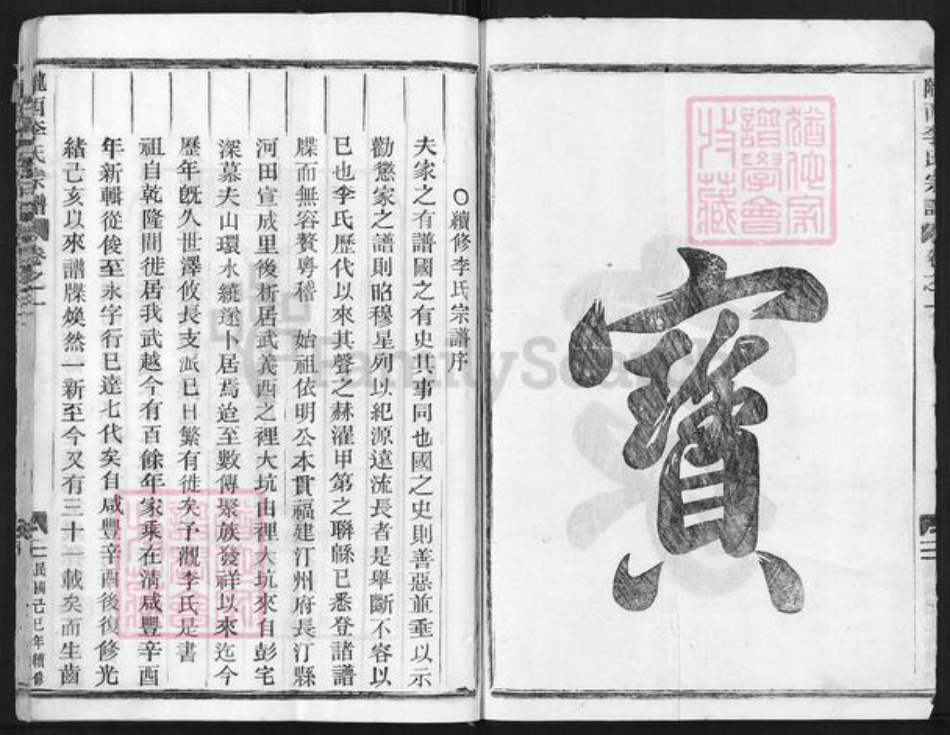 隴西李氏宗譜 卷之一
寶
猶他家譜學會收藏
FamilySearch
○續修李氏宗譜序
夫家之有譜國之有史其事同也國之史則善惡並垂以示
勸懲家之譜則昭穆星列以紀源遠流長者是舉斷不容以
已也李氏歷代以來其聲之赫濯甲第之聯緜已悉登諸譜
牒而無容贅粵稽 始祖依明公本貫福建汀州府長汀縣
河田宣成里後析居武義西之裡大坑由裡大坑來自彭宅
深慕夫山環水繞遂卜居焉迨至數傳聚族發祥以來迄今
歷年旣久世澤攸長支派已日繁有徙矣予觀李氏是書
祖自乾隆間徙居我武越今有百餘年家乘在清咸豐辛酉
年新輯從俊至永字行巳達七代矣自咸豐辛酉後復修光
緒己亥以來譜牒煥然一新至今又有三十一載矣而生齒
隴西李氏宗譜 卷之一
民國己巳年續修